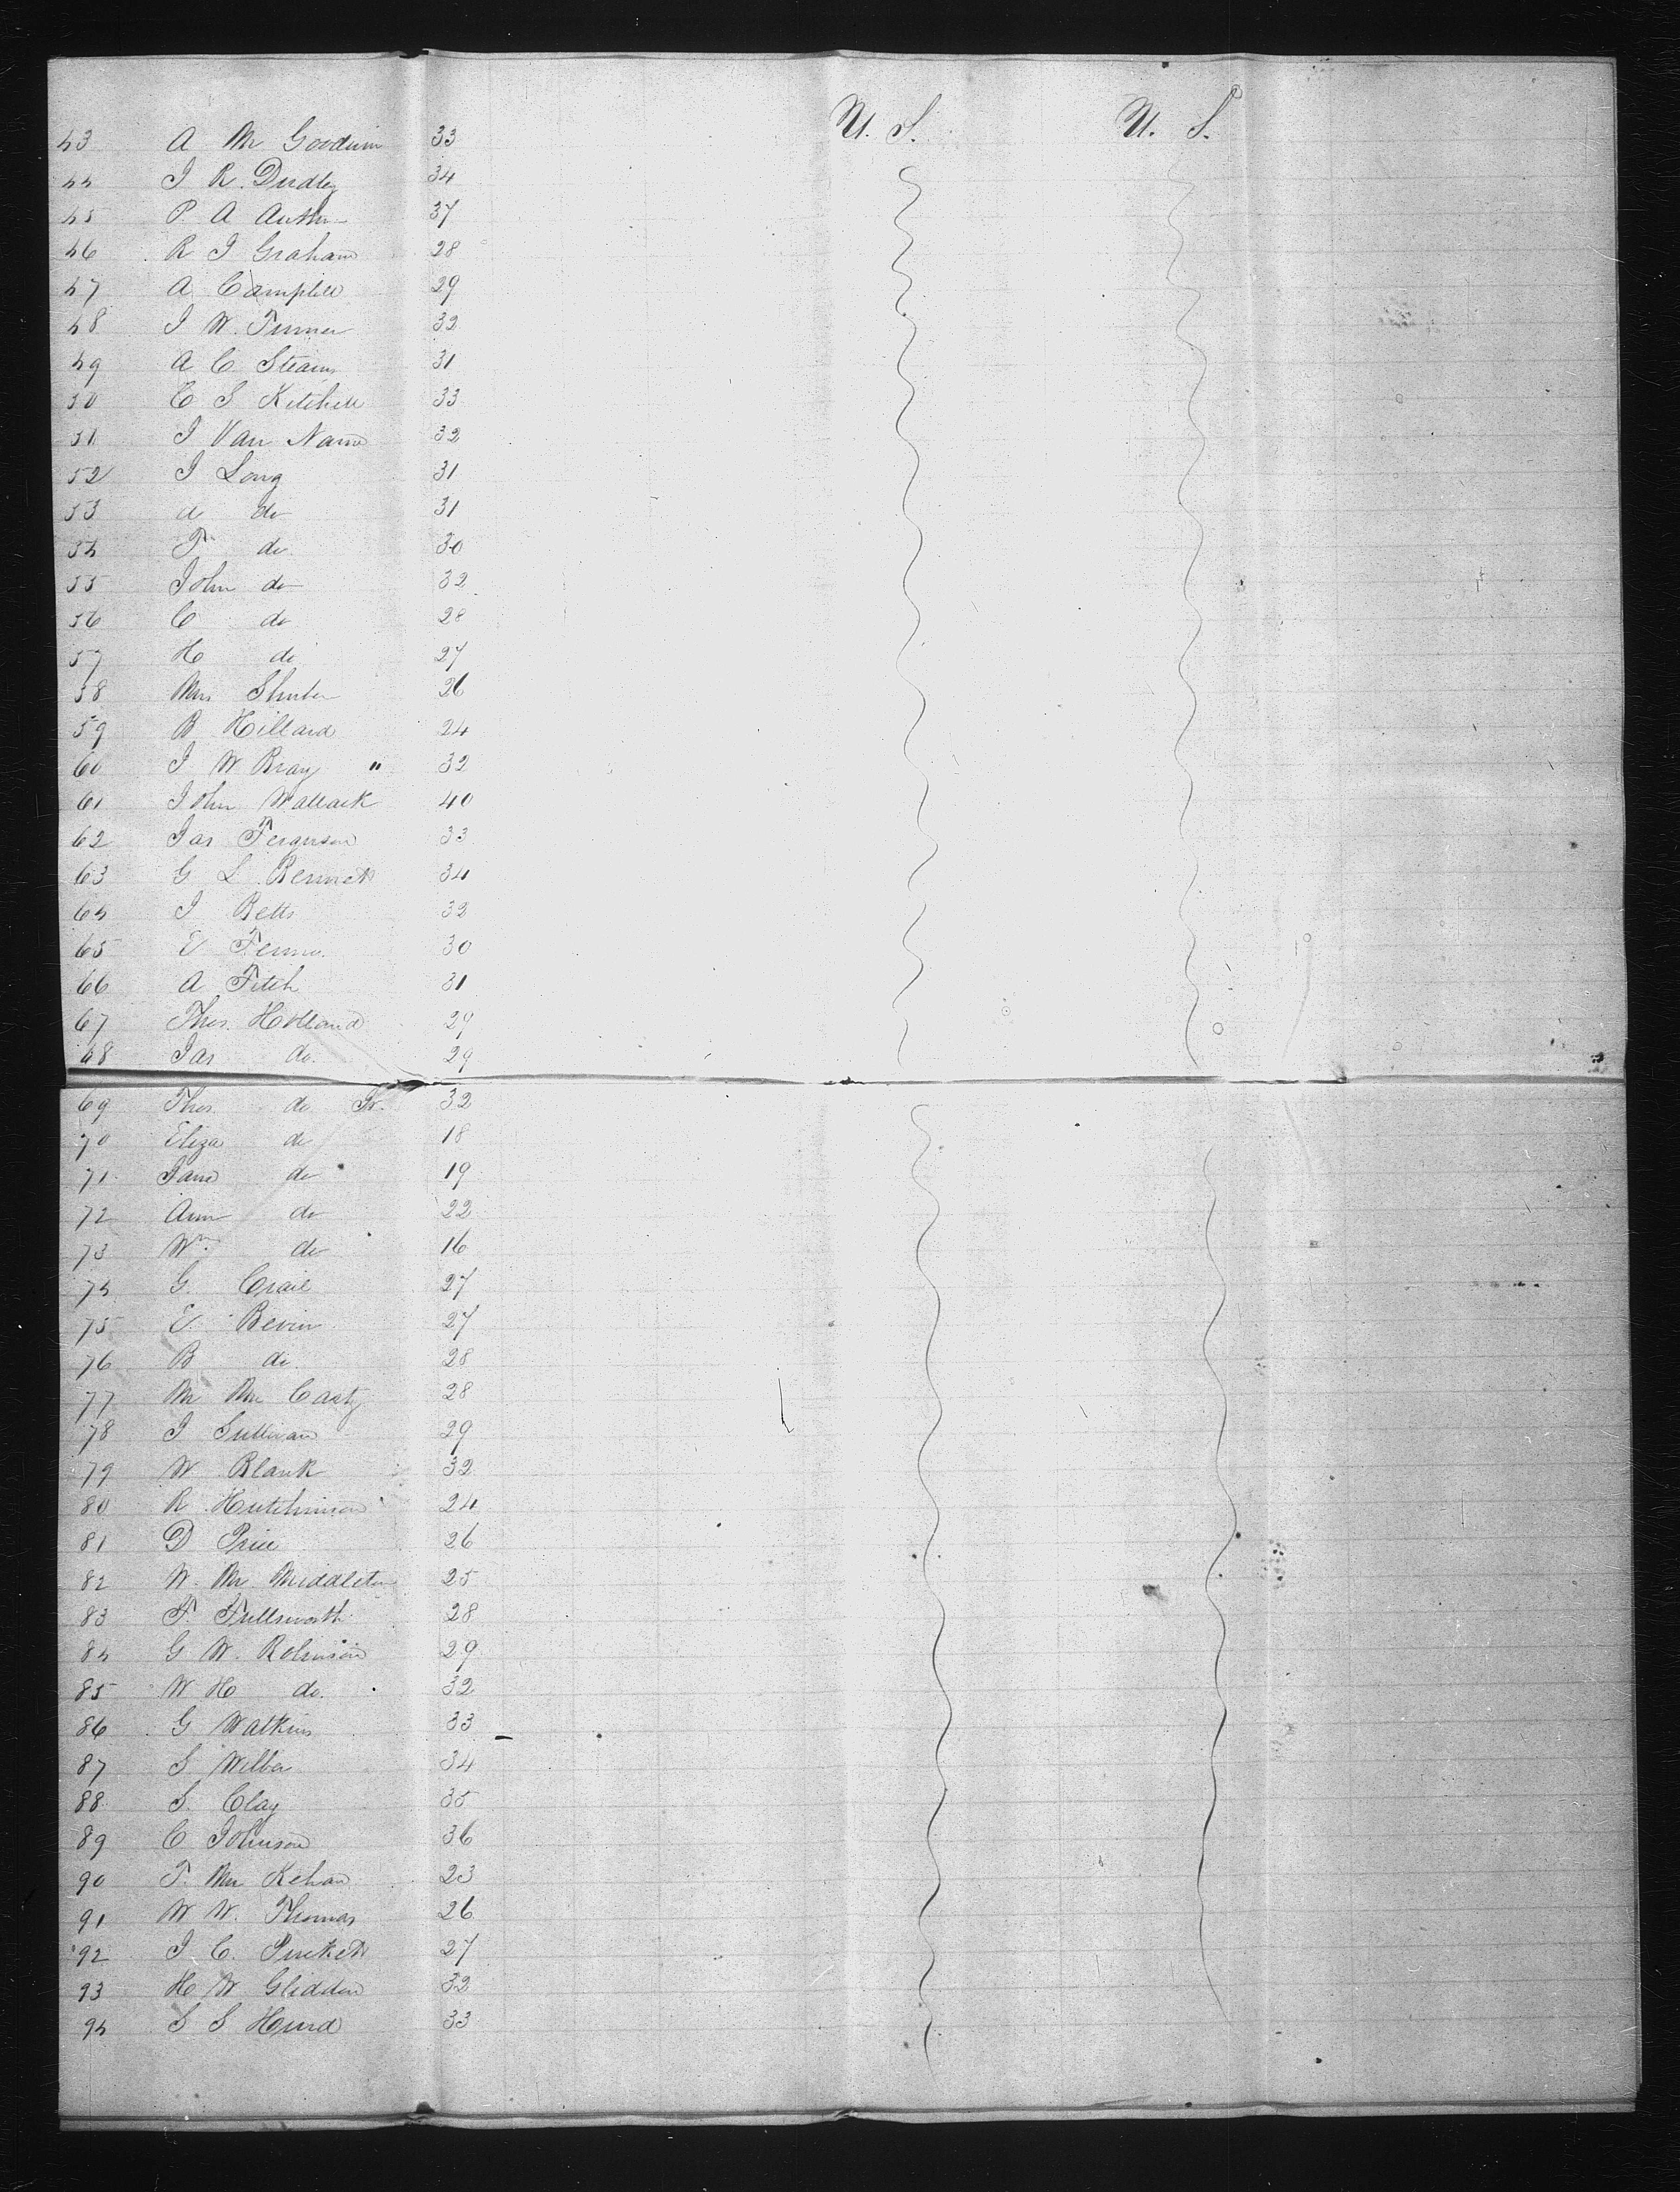 U. S. U. S.
43 A M Goodwin 33
44 J R. Dudley 34
45 P. A Authur 37
46 R J Graham 28
47 A Campbell 29
48 J W. Turner 32
49 A C Stearns 31
50 C S Kitchell 33
51 J Van Name 32
52 J Long 31
53 A do 31
54 T do 30
55 John do 32
56 C do 28
57 H do 27
58 Mrs 26
59 B Hillard 24
60 J W Bray " 32
61 John Wallack 40
62 Jas Ferguson 33
63 G L Bennett 34
64 J Betts 32
65 E 30
66 A Fitch 31
67 Thos. Holland 29
68 Jas do. 29
69 Thos do Jr. 32
70 Eliza do 18
71 Jane do 19
72 Ann do 22
73 Wm do 16
74 G. Crail 27
75 E Bevin 27
76 B do. 28
77 M Mc Carty 28
78 J Sullivan 29
79 W Blank 32
80 R Hutchinson 24
81 D Price 26
82 W. M Middleton 25
83 F. Fullsworth 28
84 G W. Robinson 29
85 W H do. 32
86 G Watkins 33
87 S Wilber 34
88 S. Clay 35
89 C Johnson 36
90 T. Mc Kehan 23
91 W W. Thomas 26
92 J C. Puckett 27
93 H W Glidden 32
94 S S Hurd 33